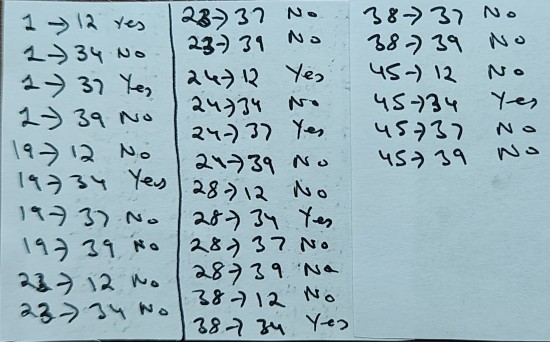 1 → 12 Yes
1 → 34 No
1 → 37 Yes
1 → 39 No
19 → 12 No
19 → 34 Yes
19 → 37 No
19 → 39 No
23 → 12 No
23 → 34 No
23 → 37 No
23 → 39 No
24 → 12 Yes
24 → 34 No
24 → 37 Yes
24 → 39 No
28 → 12 No
28 → 34 Yes
28 → 37 No
28 → 39 No
38 → 12 No
38 → 34 Yes
38 → 37 No
38 → 39 No
45 → 12 No
45 → 34 Yes
45 → 37 No
45 → 39 No